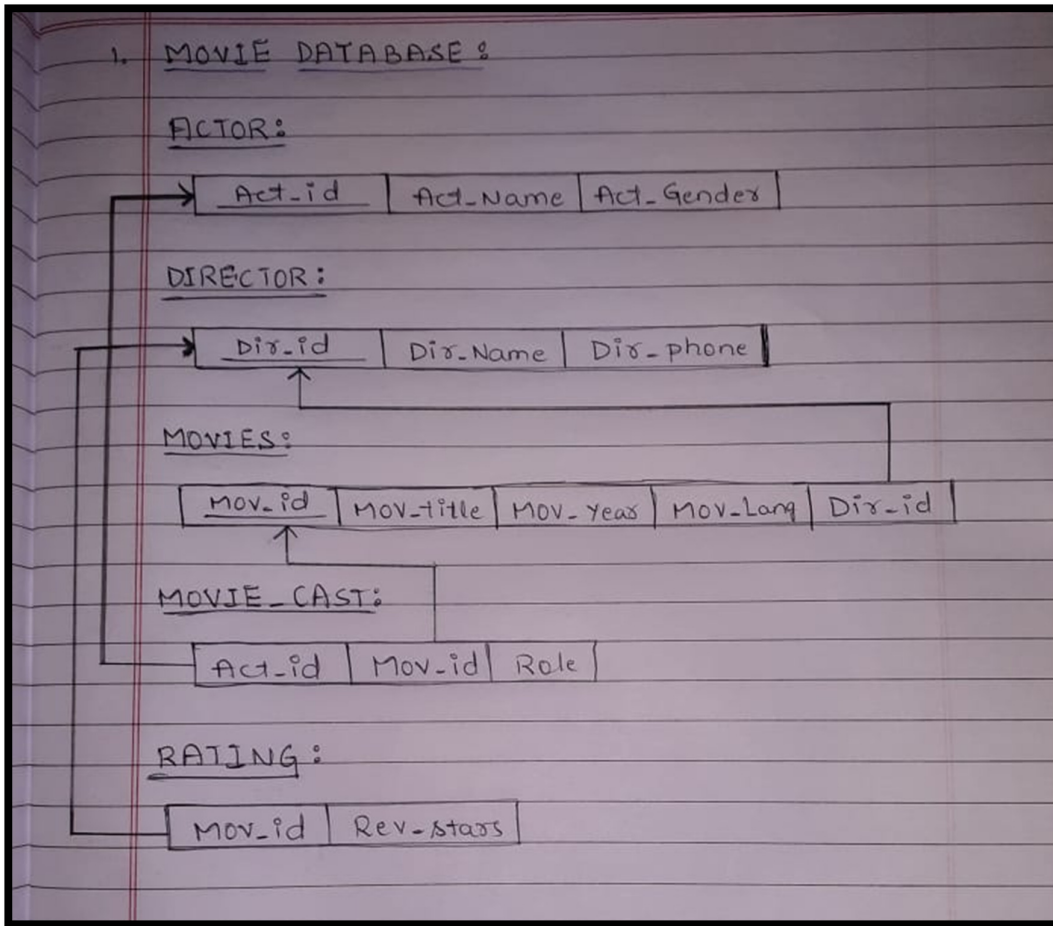 1. MOVIE DATABASE:
ACTOR:
Act_id Act_Name Act_Gender
DIRECTOR:
Dir_id Dir_Name Dir_phone
MOVIES:
Mov_id Mov_title Mov_Year Mov_Lang Dir_id
MOVIE_CAST:
Act_id Mov_id Role
RATING:
Mov_id Rev_stars